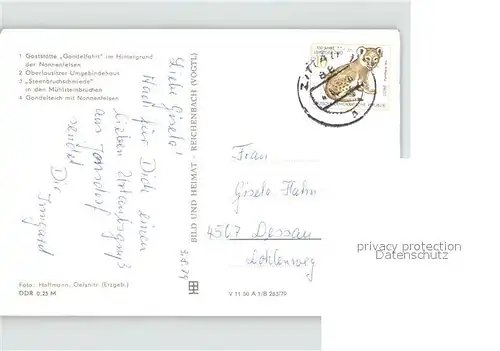 1 Gaststätte „Gondelfahrt" im Hintergrund
der Nonnenfelsen
2 Oberlausitzer Umgebindehaus
3 „Steinbruchschmiede"
in den Mühlsteinbrüchen
4 Gondelteich mit Nonnenfelsen
Liebe Gisela!
Auch für Dich einen
lieben Urlaubsgruß
aus Jonsdorf
sendet
Die Irmgard
BILD UND HEIMAT · REICHENBACH (VOGTL)
ZITTAU
DEUTSCHE DEMOKRATISCHE REPUBLIK
Frau
Gisela Hahn
4507 Dessau
privacy protection
Datenschutz
Foto: Hoffmann, Oelsnitz (Erzgeb.)
DDR 0,25 M
V 11 50 A 1/B 263/79